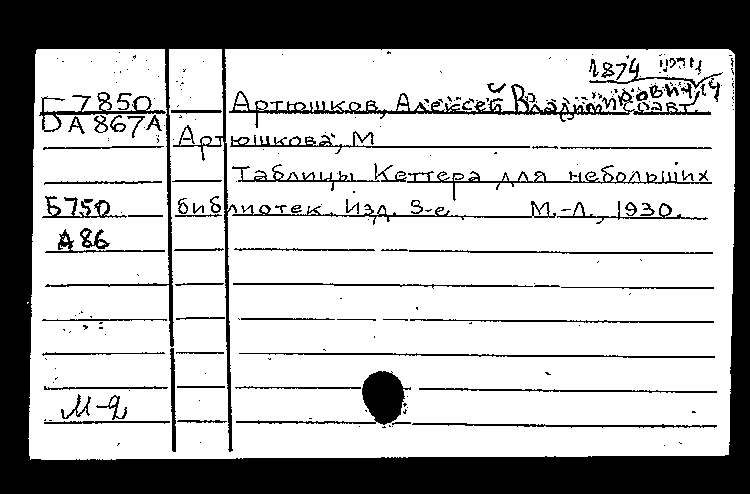 1874
Б 7850 Артюшков, Алексей Владимирович соавт.
А 867А Артюшкова, М
Таблицы Кеттера для небольших
Б750 библиотек. Изд. 3-е. М.-Л., 1930.
А 86
М-2